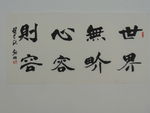 世界
無界
心容
則容